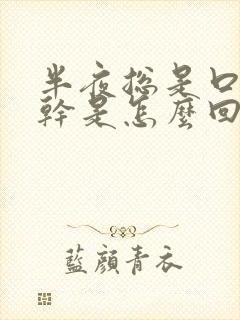 半夜總是口
幹是怎麼回
藍顏青衣